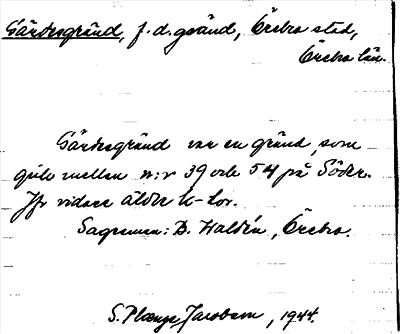 Gärdesgränd, f.d. gränd, Örebro stad,
Örebro län.
Gärdesgränd var en gränd, som
gick mellan n:r 39 och 54 på Söder.
Jfr vidare äldre k-tor.
Sagesman: B. Waldén, Örebro.
S. Jacobson, 1944.